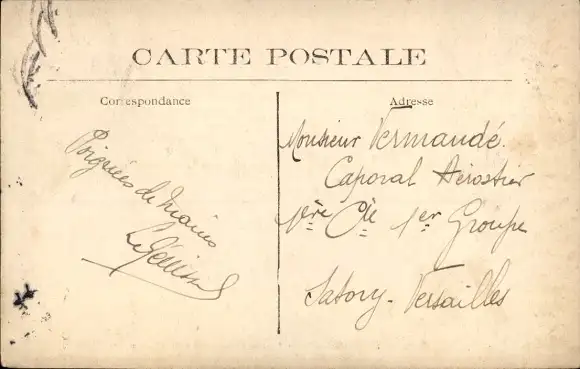 CARTE POSTALE
Correspondance
Poignées de mains
Adresse
Monsieur Vermaudé
Caporal Aérostier
1ère Cie 1er Groupe
Satory - Versailles